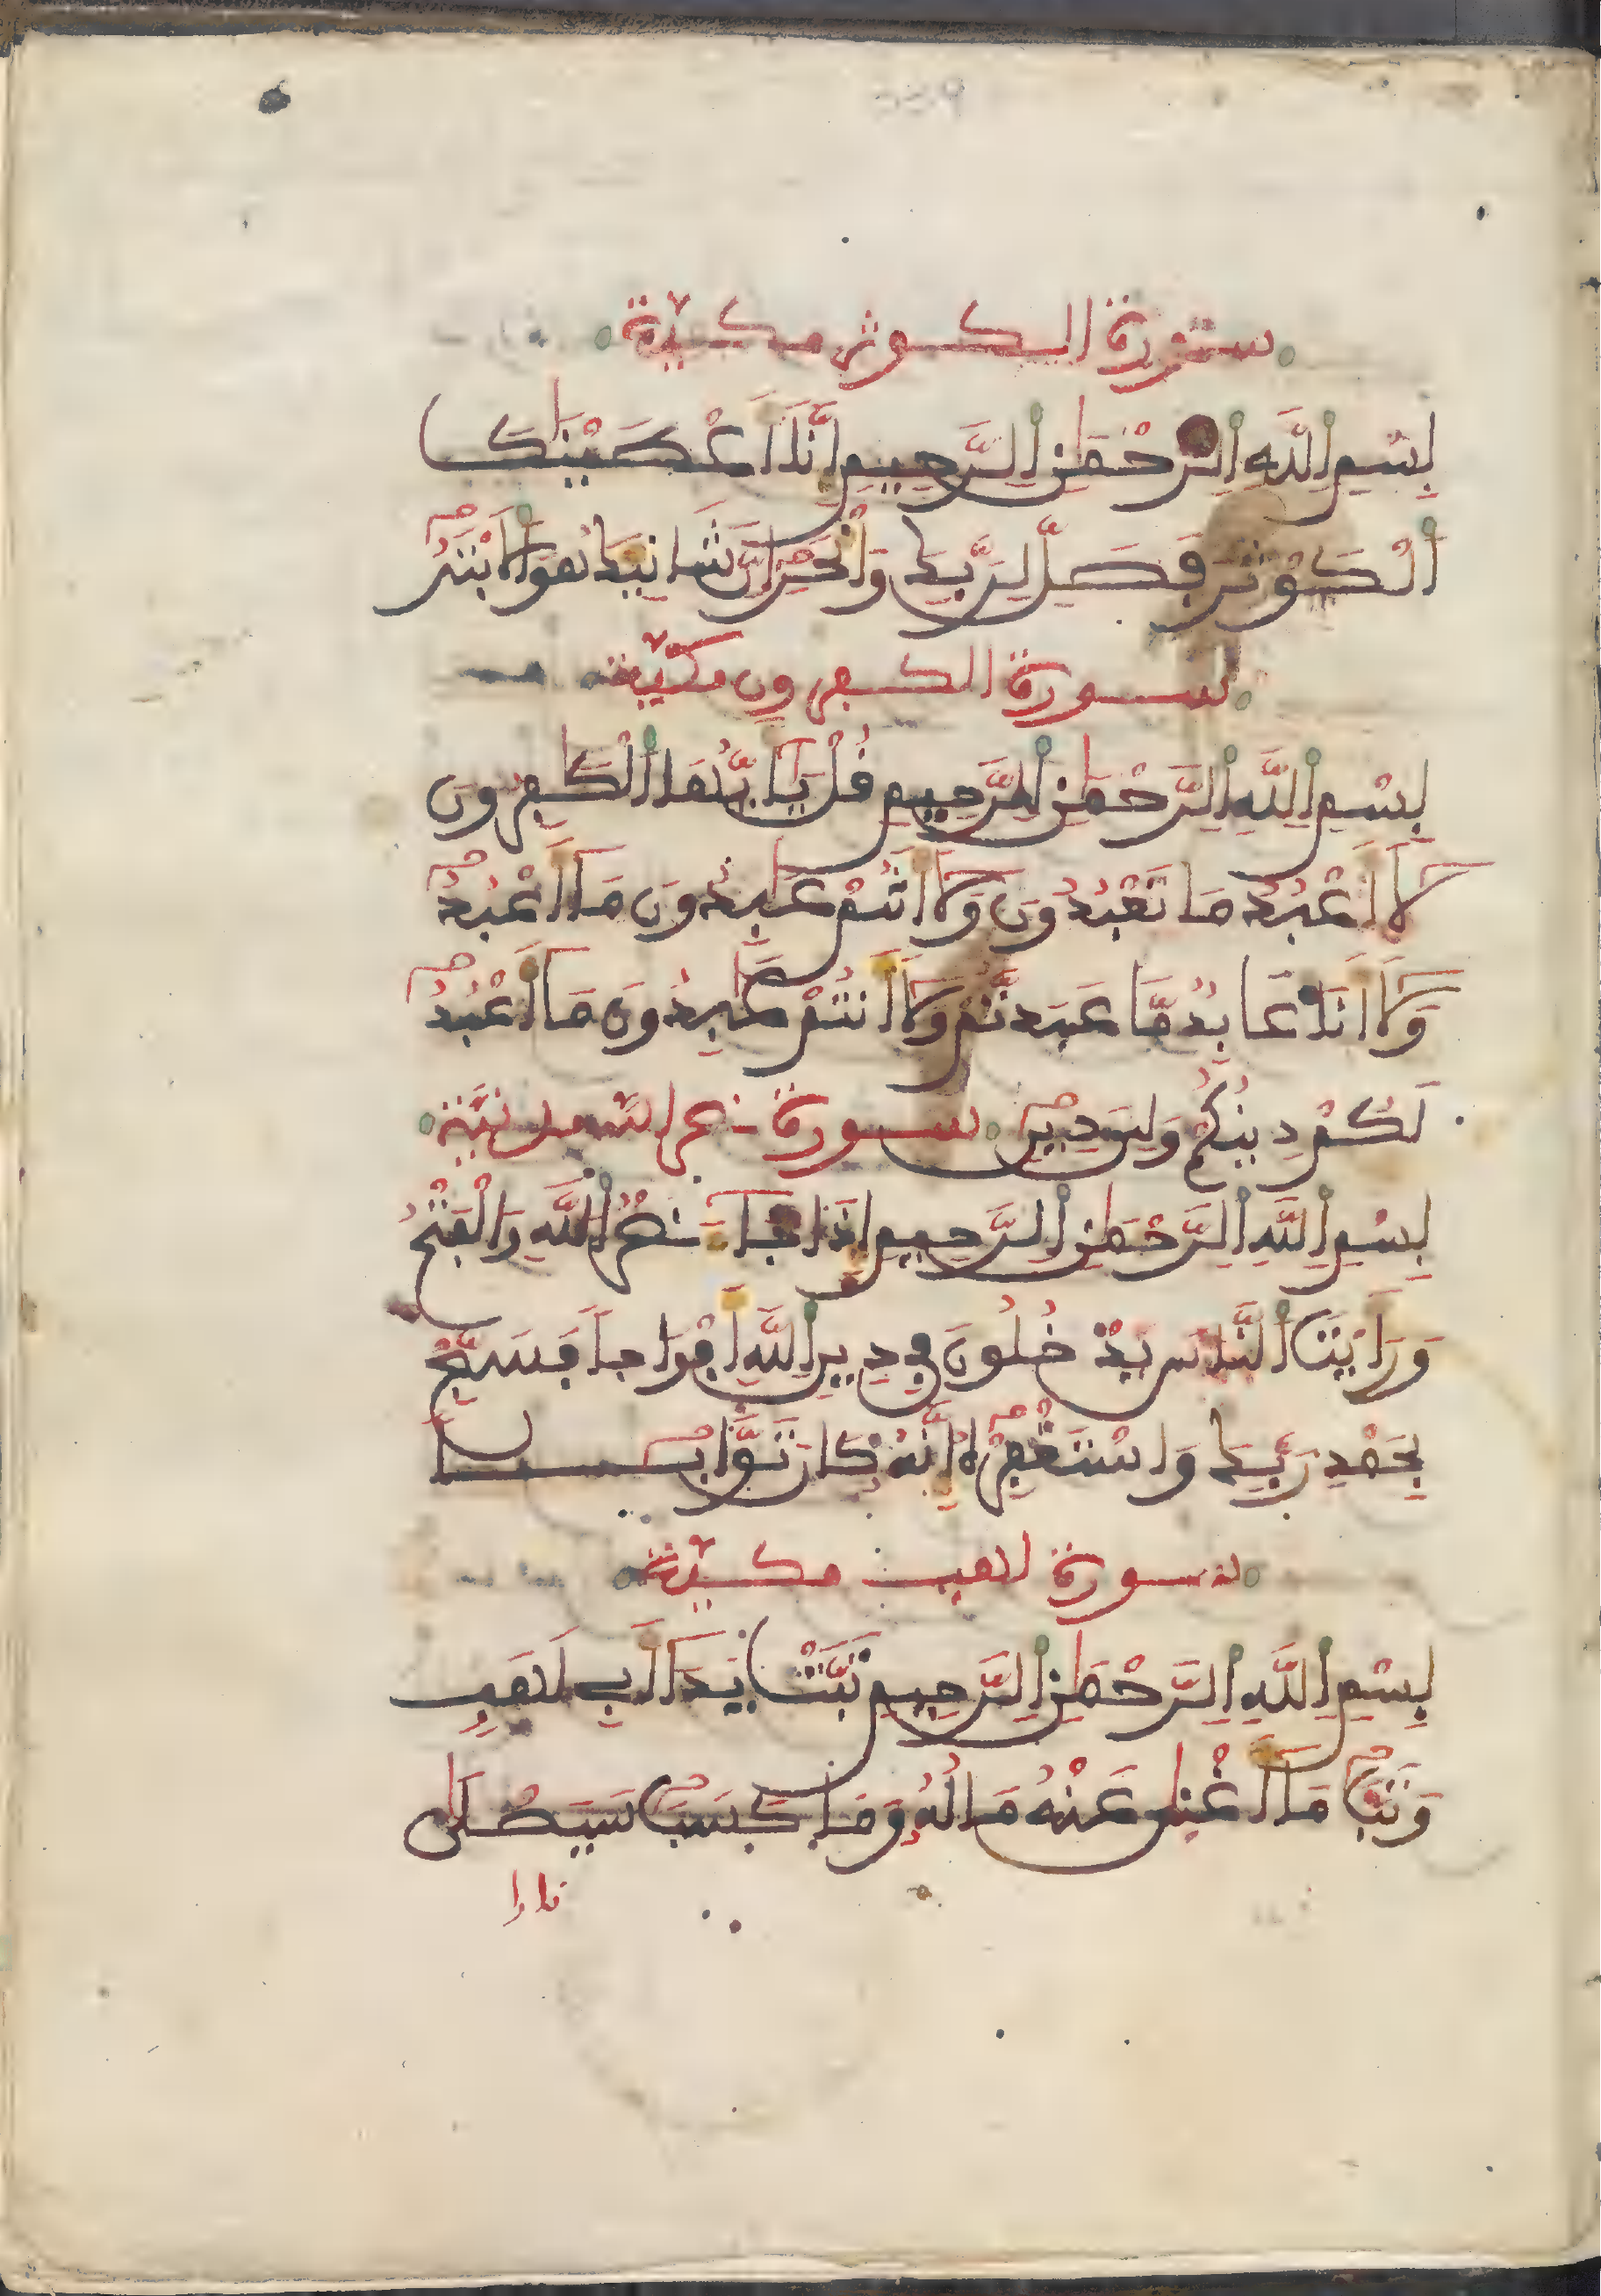 سورة الكوثر مكية
بِسْمِ اِللَّهِ اِلرَّحْمَٰنِ اِلرَّحِيمِ إِنَّا أَعْطَيْنَٰكَ
اَلْكَوْثَرَ فَصَلِّ لِرَبِّكَ وَانْحَرِ اِنَّ شَانِئَكَ هُوَ اَلَابْتَرُ
سورة الكفرون مكية
بِسْمِ اِللَّهِ اِلرَّحْمَٰنِ اِلرَّحِيمِ قُلْ يَا أَيُّهَا اَلْكَٰفِرُونَ
لَا أَعْبُدُ مَا تَعْبُدُونَ وَلَا أَنتُمْ عَٰبِدُونَ مَا أَعْبُدُ
وَلَا أَنَا عَابِدٌ مَّا عَبَدتُّمْ وَلَا أَنتُمْ عَٰبِدُونَ مَا أَعْبُدُ
لَكُمْ دِينُكُمْ وَلِيَ دِينِ سورة نصر الله مدنية
بِسْمِ اِللَّهِ اِلرَّحْمَٰنِ اِلرَّحِيمِ إِذَا جَاءَ نَصْرُ اُللَّهِ وَالْفَتْحُ
وَرَأَيْتَ اَلنَّاسَ يَدْخُلُونَ فِي دِينِ اِللَّهِ أَفْوَاجاً فَسَبِّحْ
بِحَمْدِ رَبِّكَ وَاسْتَغْفِرْهُ إِنَّهُ كَانَ تَوَّاباً
سورة لهب مكية
بِسْمِ اِللَّهِ اِلرَّحْمَٰنِ اِلرَّحِيمِ تَبَّتْ يَدَا أَبِي لَهَبٍ
وَتَبَّ مَا أَغْنَىٰ عَنْهُ مَالُهُ وَمَا كَسَبَ سَيَصْلَىٰ
نارا